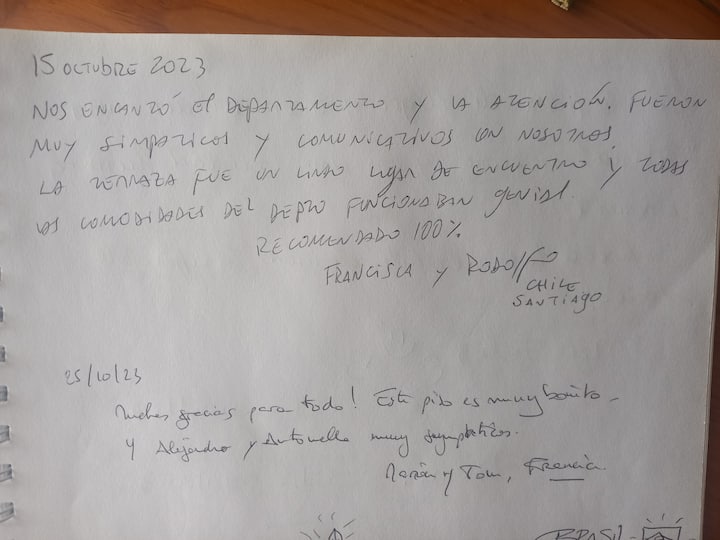 15 OCTUBRE 2023
NOS ENCANTÓ El DEPARTAMENTO Y LA ATENCIÓN. FUERON
MUY SIMPATICOS Y COMUNICATIVOS CON NOSOTROS
LA TERRAZA FUE UN LINDO LUGAR DE ENCUENTRO Y TODAS
LAS COMODIDADES DEL DEPTO FUNCIONABAN GENIAL.
RECOMENDADO 100%
FRANCISCA Y RODOLFO
CHILE
SANTIAGO
25/10/23
Muchas gracias para todo! Este piso es muy bonito
Y Alejandro y Antonella muy
y Tom, Francia
BRASIL